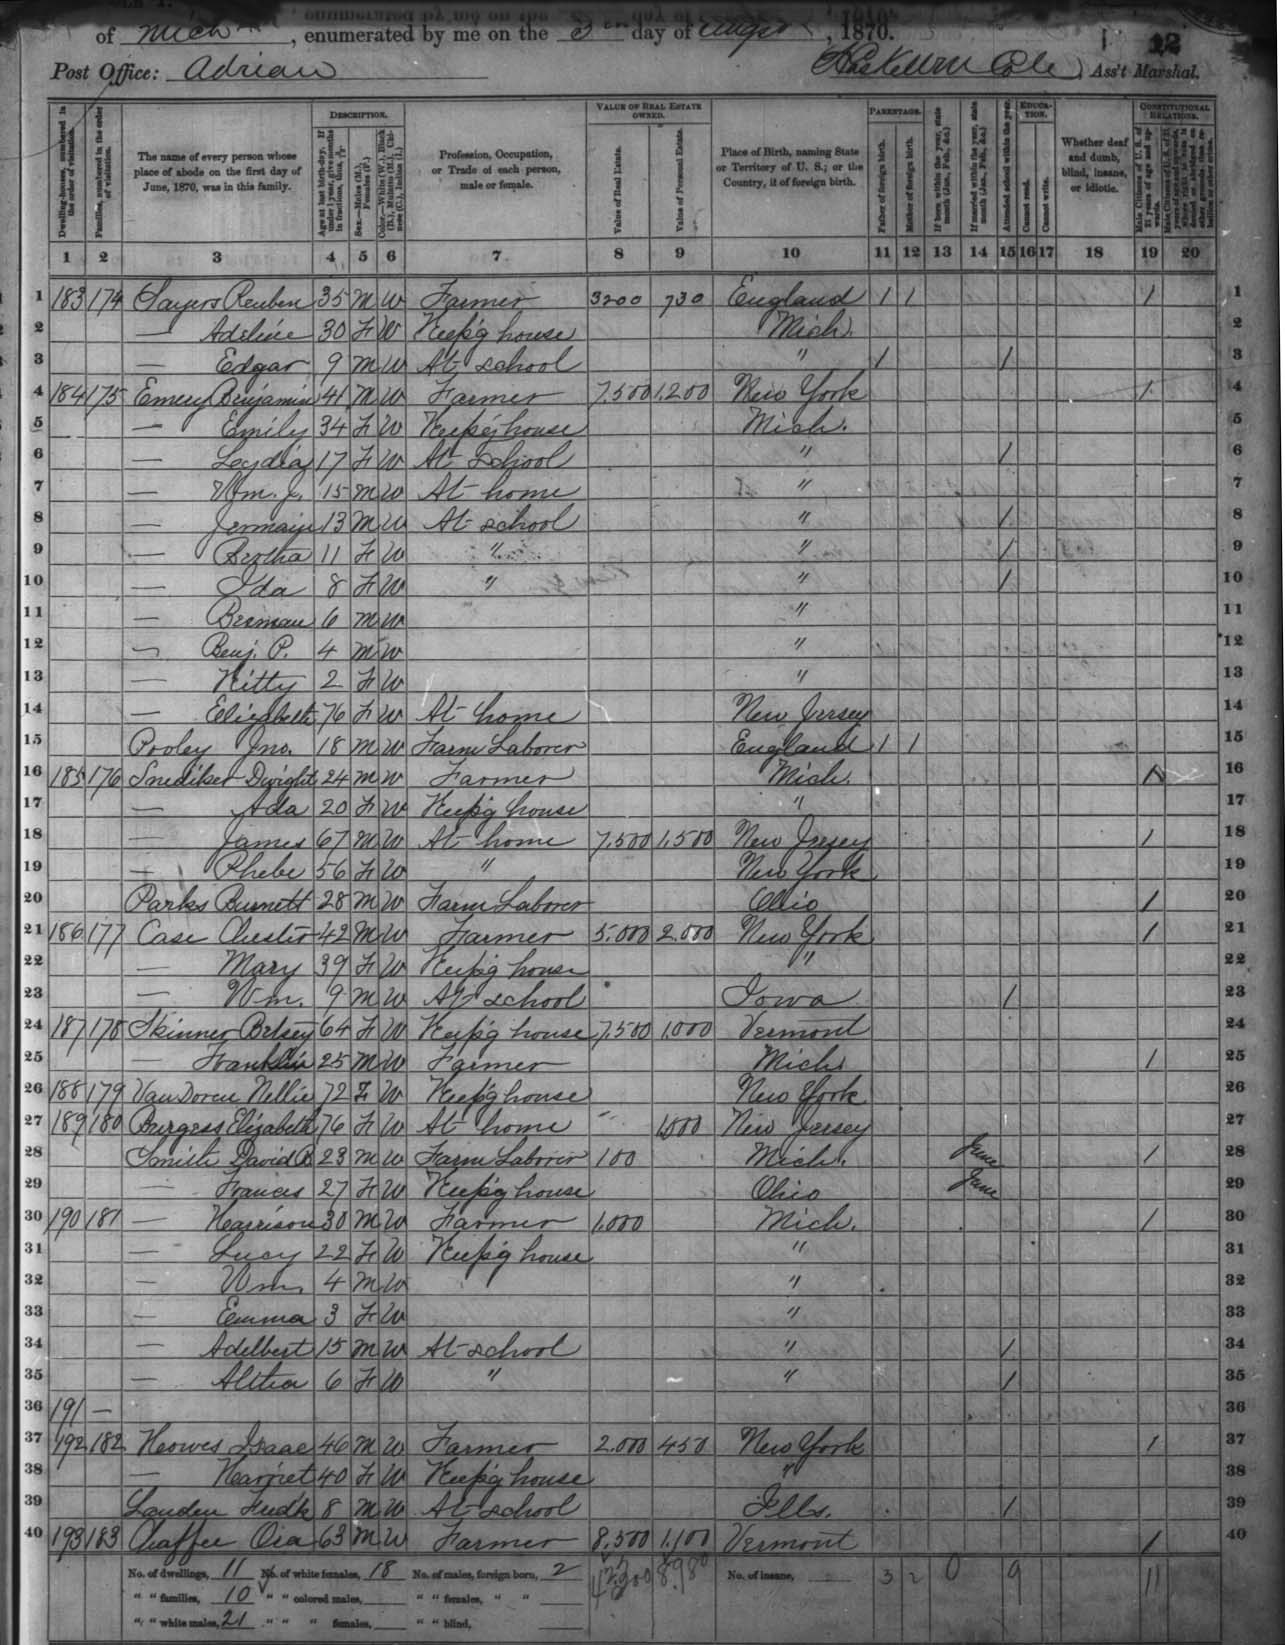 of Mich, enumerated by me on the 3 day of Augst, 1870. 12
Post Office: Adrian Cole, Ass't Marshal.
Dwelling-houses, numbered in the order of visitation. Families, numbered in the order of visitation. The name of every person whose place of abode on the first day of June, 1870, was in this family. DESCRIPTION. Profession, Occupation, or Trade of each person, male or female. VALUE OF REAL ESTATE OWNED. Value of Real Estate. Value of Personal Estate. Place of Birth, naming State or Territory of U. S.; or the Country, if of foreign birth. PARENTAGE. Father of foreign birth. Mother of foreign birth. If born within the year, state month (Jan., Feb., &c.) If married within the year, state month (Jan., Feb., &c.) Attended school within the year. EDUCATION. Cannot read. Cannot write. Whether deaf and dumb, blind, insane, or idiotic. CONSTITUTIONAL RELATIONS.
1 2 3 4 5 6 7 8 9 10 11 12 13 14 15 16 17 18 19 20
1 183 174 Sayers Reuben 35 M W Farmer 3200 730 England 1 1 1 1
2 — Adeline 30 F W Keep'g house Mich. 2
3 — Edgar 9 M W At school " 1 1 3
4 184 175 Emery Benjamin 41 M W Farmer 7,500 1,200 New York 1 4
5 — Emily 34 F W Keep'g house Mich. 5
6 — Lydia 17 F W At School " 1 6
7 — Wm. J. 15 M W At home " 7
8 — Jermain 13 M W At school " 1 8
9 — Bertha 11 F W " " 1 9
10 — Ida 8 F W " " 1 10
11 — 6 M W " 11
12 — Benj. P. 4 M W " 12
13 — Kitty 2 F W " 13
14 — Elizabeth 76 F W At home New Jersey 14
15 Pooley Jno. 18 M W Farm Laborer England 1 1 15
16 185 176 Snediker Dwight 24 M W Farmer Mich. 1 16
17 — Ada 20 F W Keep'g house " 17
18 — James 67 M W At home 7,500 1,500 New Jersey 1 18
19 — Phebe 56 F W " New York 19
20 Parks Burnett 28 M W Farm Laborer Ohio 1 20
21 186 177 Case Chester 42 M W Farmer 5,000 2,000 New York 1 21
22 — Mary 39 F W Keep'g house " 22
23 — Wm. 9 M W At school Iowa 1 23
24 187 178 Skinner Betsey 64 F W Keep'g house 7,500 1,000 Vermont 24
25 — Franklin 25 M W Farmer Mich. 1 25
26 188 179 Van Doren Nellie 72 F W Keep'g house New York 26
27 189 180 Burgess Elizabeth 76 F W At home New Jersey 27
28 Smith David B. 23 M W Farm Laborer 100 Mich. June 1 28
29 — Frances 27 F W Keep'g house Ohio June 29
30 190 181 — Harrison 30 M W Farmer 1,000 Mich. 1 30
31 — Lucy 22 F W Keep'g house " 31
32 — Wm. 4 M W " 32
33 — Emma 3 F W " 33
34 — Adelbert 15 M W At school " 1 34
35 — Althea 6 F W " " 1 35
36 191 — 36
37 192 182 Howes Isaac 46 M W Farmer 2,000 450 New York 1 37
38 — Harriet 40 F W Keep'g house " 38
39 Louden Fredk 8 M W At school Ills. 1 39
40 193 183 Chaffee 63 M W Farmer 8,500 1,100 Vermont 1 40
No. of dwellings, 11 No. of white females, 18 No. of males, foreign born, 2 No. of insane, 3 2 0 9 11
" " families, 10 " " colored males, " " females, " "
" " white males, 21 " " " females, " " blind,